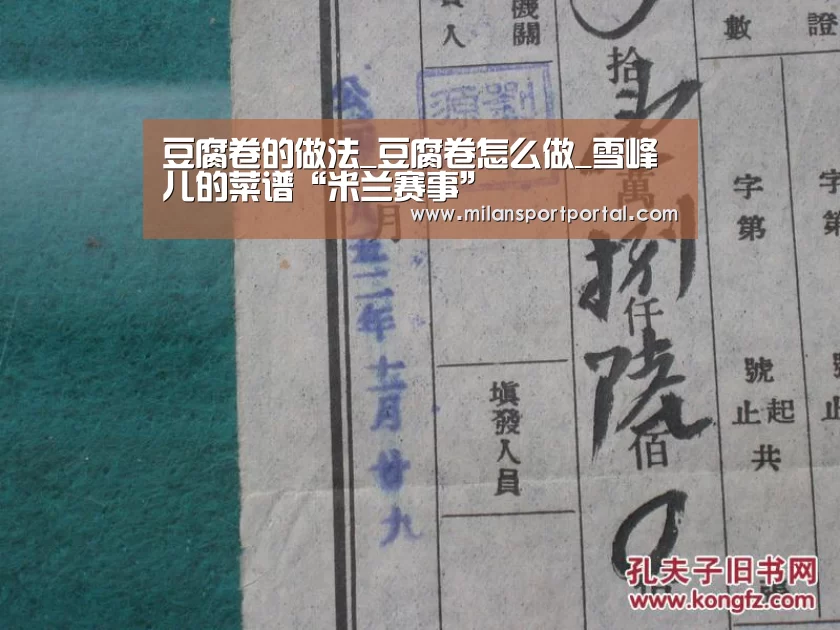 豆腐卷的做法_豆腐卷怎么做_雪峰
儿的菜谱“米兰赛事”
www.milansportportal.com
證
數
字第
號
起止
共
字第
拾
萬捌仟陸佰
機關
人
填發人員
五二年
月廿九
孔夫子旧书网
www.kongfz.com